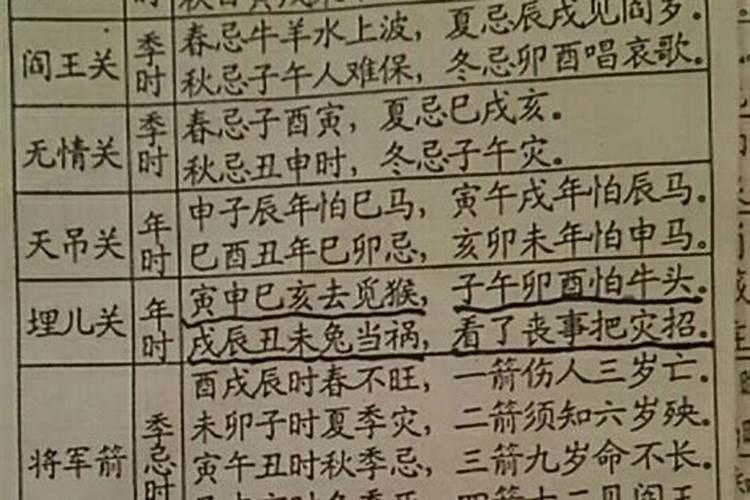 时
阎王关
季时
春忌牛羊水上波，夏忌辰戌见阎罗。
秋忌子午人难保，冬忌卯酉唱哀歌。
无情关
季时
春忌子酉寅，夏忌巳戌亥。
秋忌丑申时，冬忌子午灾。
天吊关
年时
申子辰年怕巳马，寅午戌年怕辰马。
巳酉丑年巳卯忌，亥卯未年怕申马。
埋儿关
年时
寅申巳亥去觅猴，子午卯酉怕牛头。
戌辰丑未兔当祸，看了丧事把灾招。
将军箭
季忌时
酉戌辰时春不旺，一箭伤人三岁亡。
未卯子时夏季灾，二箭须知六岁殃。
寅午丑时秋季忌，三箭九岁命不长。